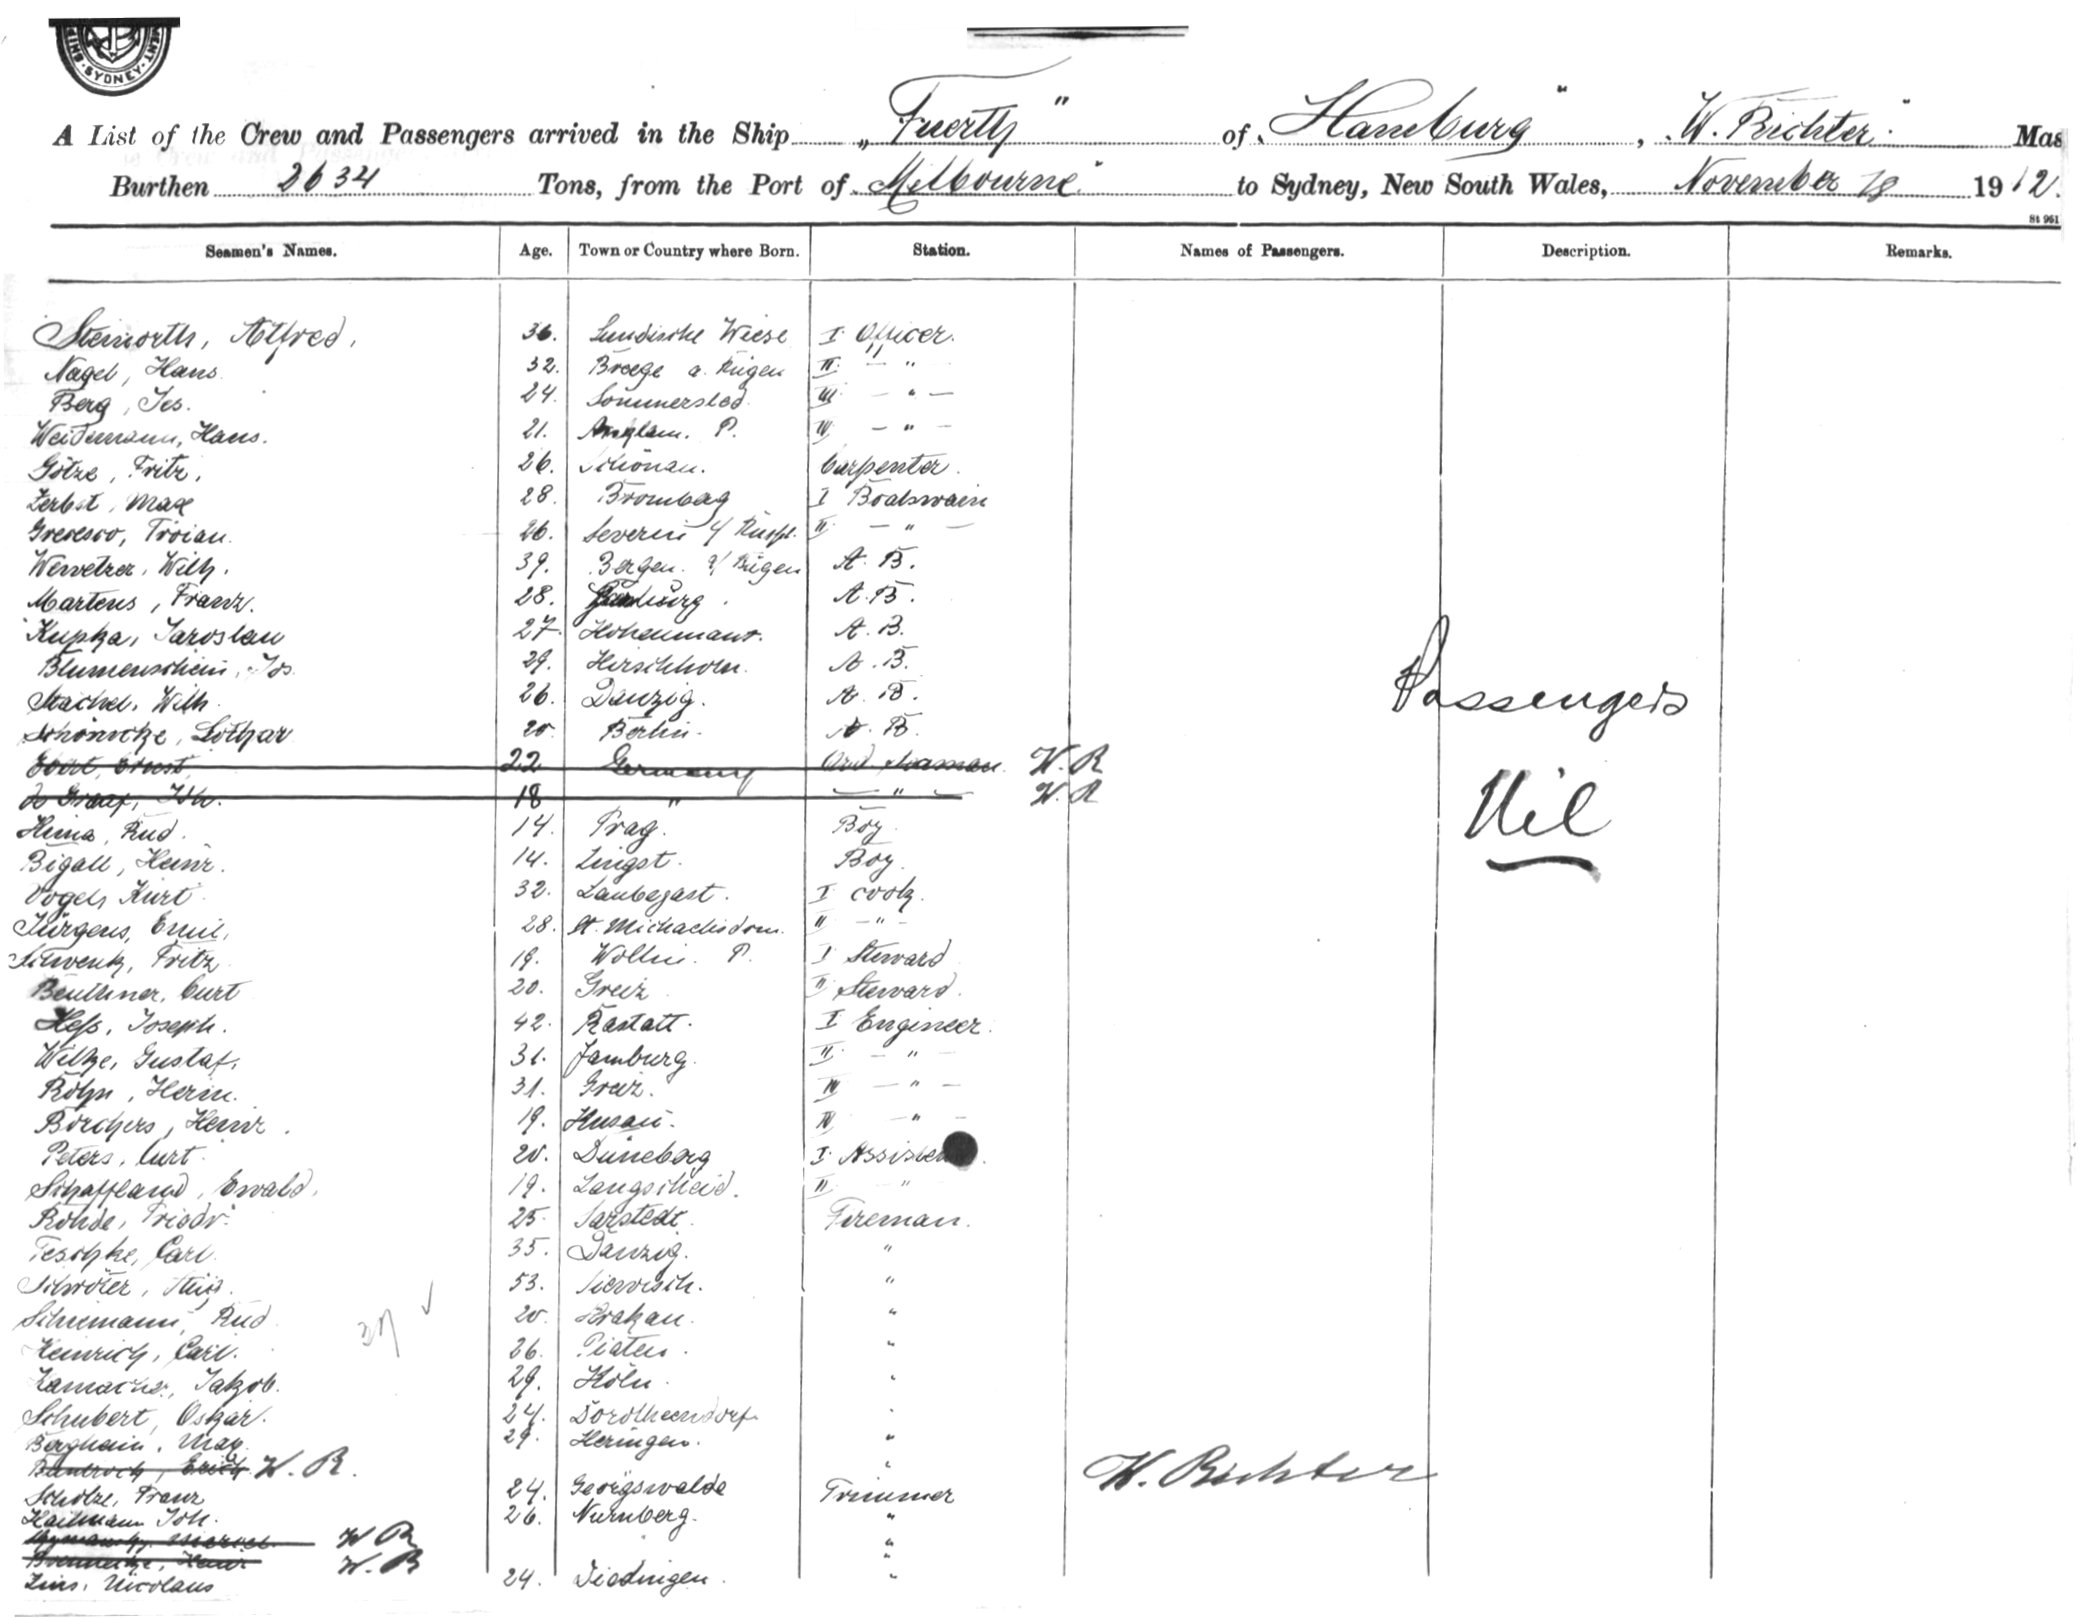 SYDNEY
A List of the Crew and Passengers arrived in the Ship „Fuerth" of „Hamburg", „W. Richter" Mas
Burthen 2634 Tons, from the Port of „Melbourne" to Sydney, New South Wales, November 18 1912.
St 961
Seamen's Names. Age. Town or Country where Born. Station. Names of Passengers. Description. Remarks.
Steinorth, Alfred, 36. Sundische Wiese I Officer.
Nagel, Hans. 32. Breege a. Rügen II. — " —
Berg, Jes. 24. Sommersted. III. — " —
Weidemann, Hans. 21. Anglam. P. IV — " —
Götze, Fritz. 26. Schönau. Carpenter.
Zerbst, Max 28. Bromberg I Boatswain
Troian. 26. Severin II — " —
Wewetzer, Wilh. 39. Bergen a/ Rügen A. B.
Martens, Franz. 28. A. B.
Kupka, Jaroslau 27. Hohenmaut. A. B.
Blumenschein, Jos. 29. Hirschhorn. A. B.
Stachel, Wilh. 26. Danzig. A. B.
Schönicke, Lothar 20. Berlin. A. B.
Passengers
Ernst, 22 Germany Ord. Seaman. W. R
de Graaf, Joh. 18 " — " — W. R
Nil
Rud. 14. Prag. Boy.
Bigall, Heinr. 14. Zingst. Boy.
Vogel, Kurt 32. Laubegast. I cook.
Jürgens, Emil, 28. St. Michaelisdonn. II — " —
Schwenk, Fritz 19. Wollin. P. I Steward
Beuthner, Curt 20. Greiz II Steward.
Heß, Joseph. 42. Rastatt. I Engineer.
Wilke, Gustaf. 31. Jamburg. II — " —
Röhn, Herm. 31. Greiz. III — " —
Borchers, Heinr. 19. Husum. IV — " —
Peters, Curt. 20. Düneberg I Assistent.
Schaffland, Ewald. 19. Langscheid. II "
Rohde, Friedr. 25. Sarstedt. Fireman.
Teschke, Carl. 35. Danzig. "
Schröter, 53. "
Schiemann, Rud 20. Krakau. "
37 ✓
Heinrich, Carl. 26. "
Jakob. 29. Köln. "
Schubert, Oskar. 24. Dorotheendorf. "
Berghain, Max. 29. Heringen. "
Erich W. R. "
W. Richter
Scholze, Franz 24. Georgswalde Trimmer
Joh. 26. Nurnberg. "
W R "
Heinr W. R "
Zins, Nicolaus 24. "